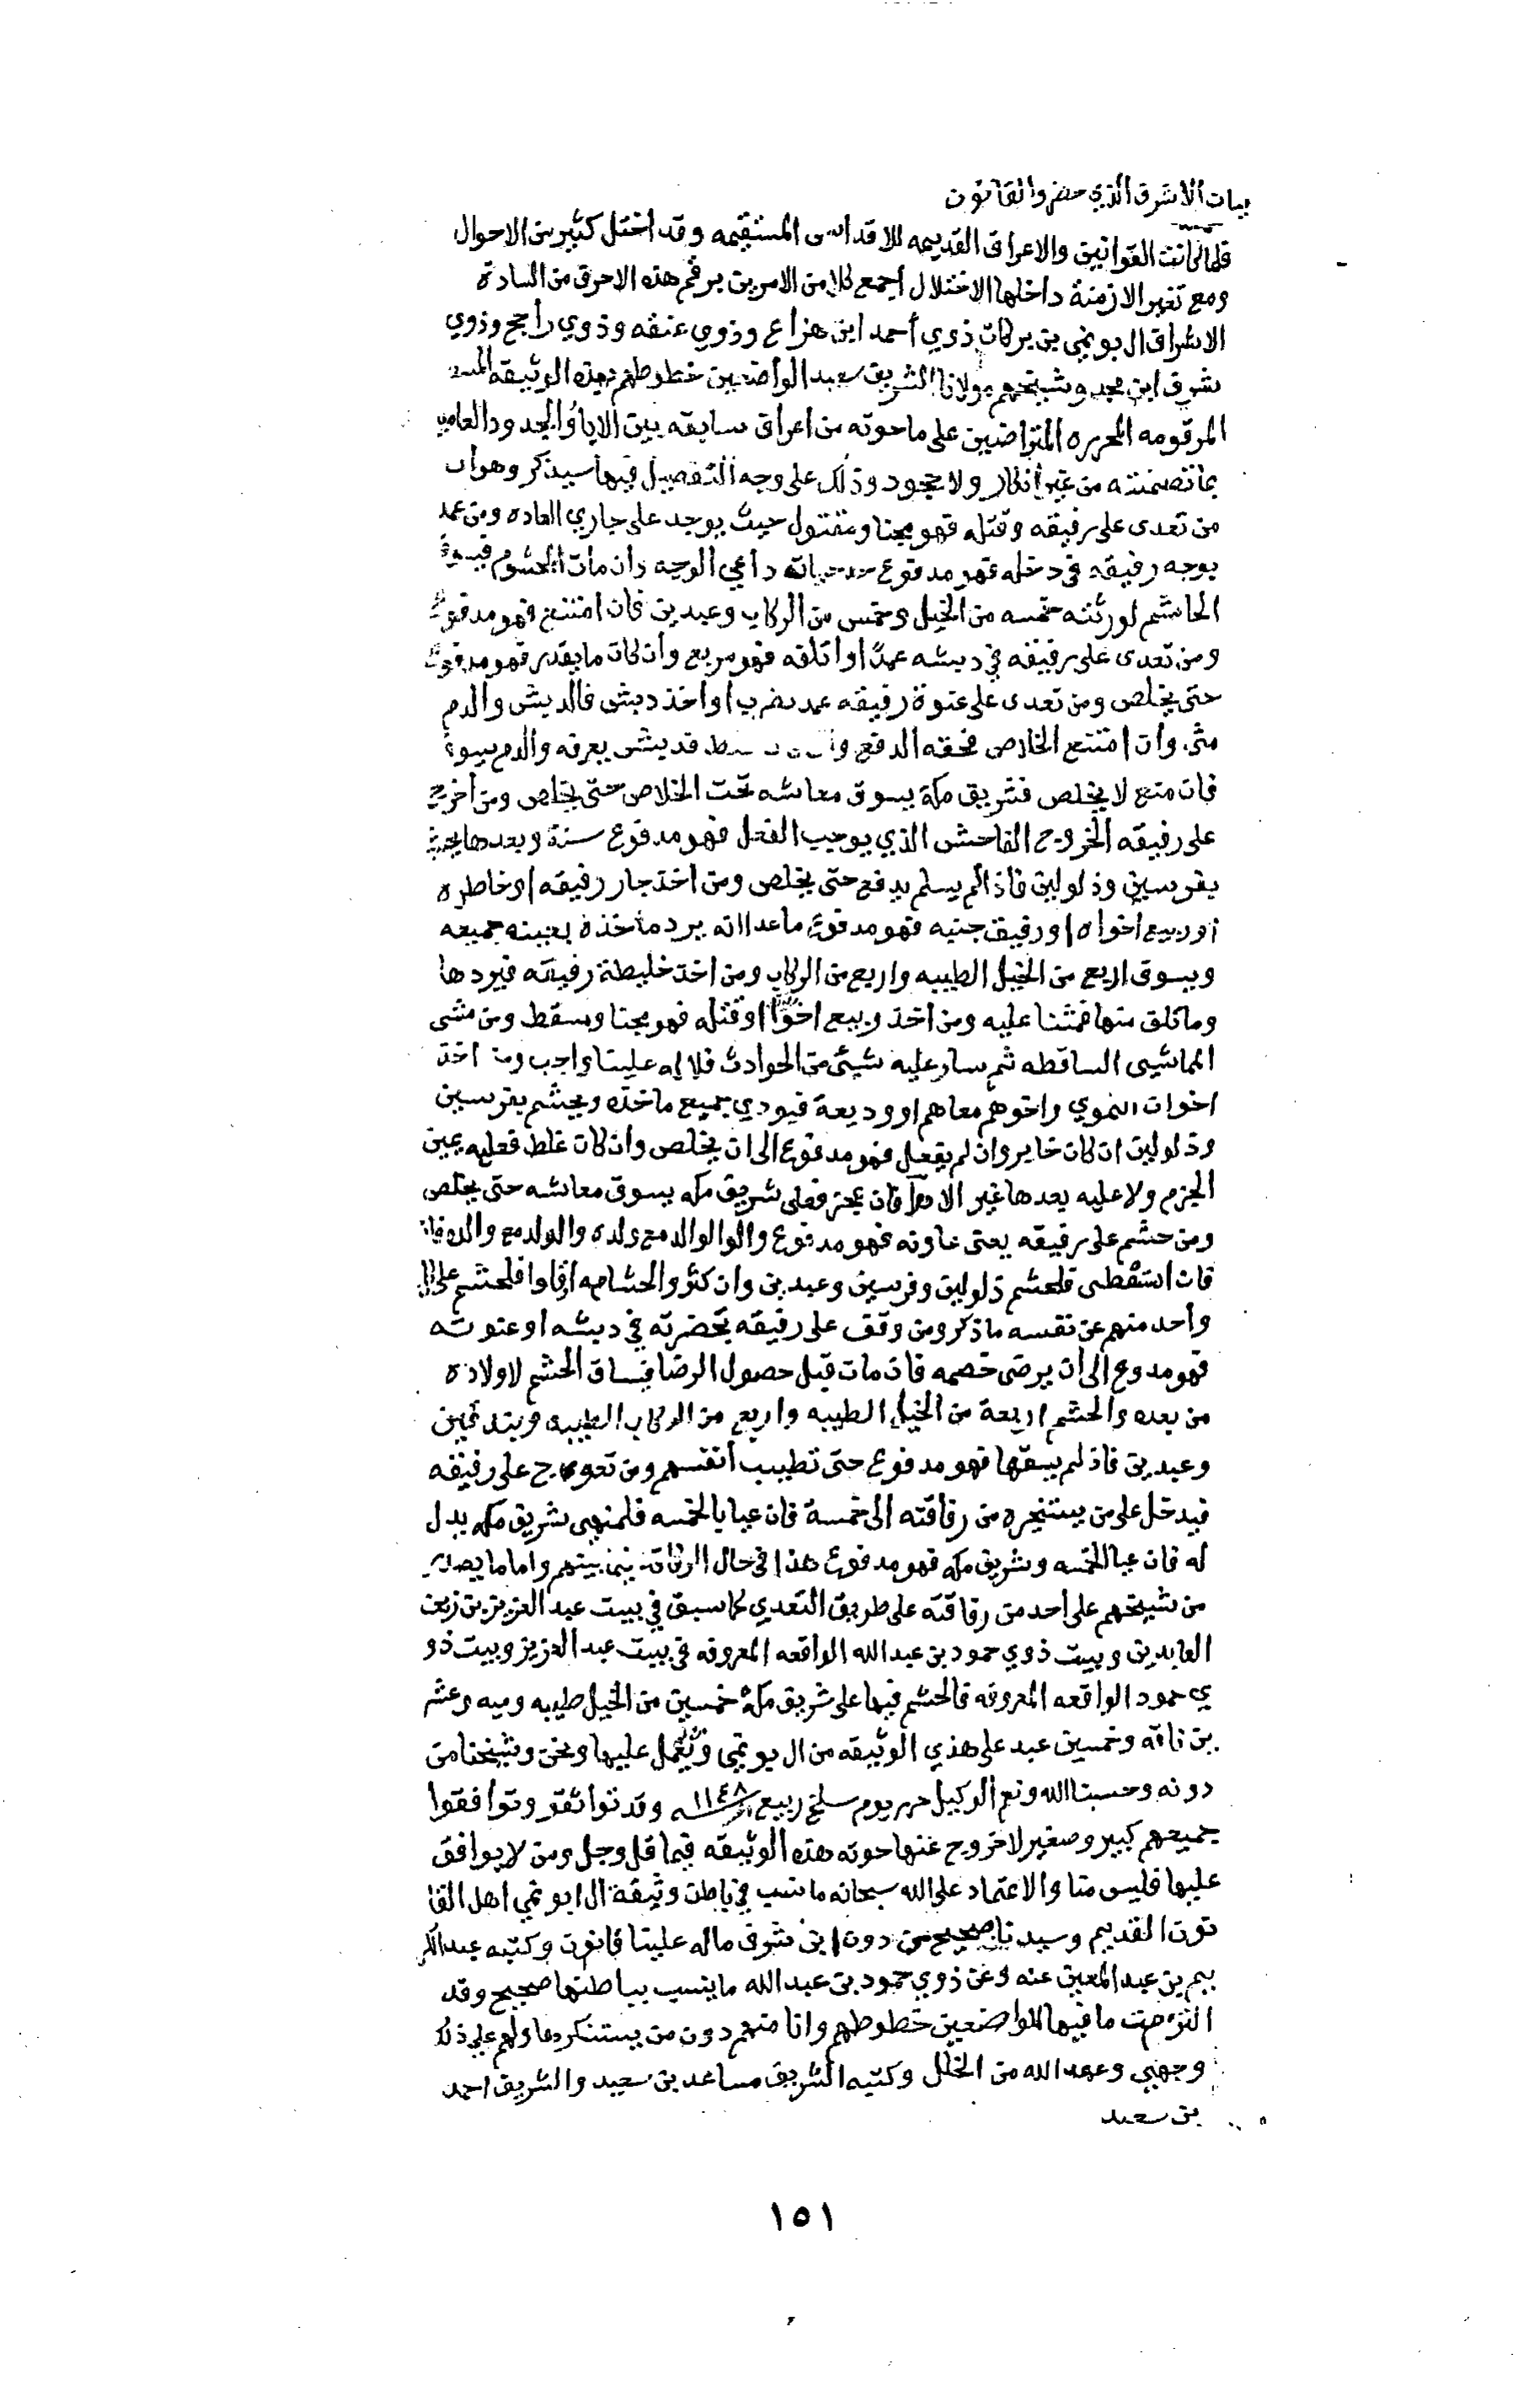 بيات الاشرق الذي حضر والقانون
فلما كانت القوانين والاعراف القديمه للاقداس المستقيمه وقد اختل كثير من الاحوال
ومع تغير الازمنة داخلها الاختلال أجمع كلا من الامرين برقم هذه الاحرف من السادة
الاشراف ال بو نمي بن بركات ذوي أحمد ابن هزاع وذوي عنقه وذوي راجح وذوي
شرف ابن محمد وشيختهم مولانا الشريف سعيد الواضعين خطوطهم بهذه الوثيقه
المرقومه المحرره المتراضين على ماحوته من اعراف سابقه بين الاباؤ الجدود العامين
بما تضمنته من غير أنكار ولا جحود وذلك على وجه التفصيل فيها سيذكر وهوان
من تعدى على رفيقه وقتله فهو مجنا ومقتول حيث يوجد على جاري العاده ومن عمد
بوجه رفيقه في دخله فهو مدفوع حياته داعي الوجه وان مات المحشوم
الحاشم لورثته خمسه من الخيل وخمس من الركاب وعبدين فان امتنع فهو مدفوع
ومن تعدى على رفيقه في دبشه عمداً او اتلافه فهو مربع وان كان مايقدر فهو مدفوع
حتى يخلص ومن تعدى على عنوة رفيقه عمد بضرب او اخذ دبش فالدبش والدم
مثن وان امتنع الخلاص فحقه الدفع قدبش يعرفه والدم يسوق
فان منع لا يخلص فشريف مكة يسوق معاشه تحت الخلاص حتى يخلص ومن أخرج
على رفيقه الخروج الفاحش الذي يوجب الفعل فهو مدفوع سنة وبعدها
بفرسين وذلولين فاذا لم يسلم يدفع حتى يخلص ومن اخذ جار رفيقه او خاطره
او ربيع اخواه او رفيق جنبه فهو مدفوع ماعدا انه يرد ماخذه بعينه جميعه
ويسوق اربع من الخيل الطيبه واربع من الركاب ومن اخذ خليطة رفيقه فيردها
وماتلف منها فمثنا عليه ومن اخذ ربيع اخوا او قتله فهو مجنا وسقط ومن مشى
الماشيى الساقطه ثم سار عليه شيئ من الحوادث فلا له علينا واجب ومن اخذ
اخوات النموي واخوهم معاهم او وديعة فيودي جميع ماخذه ويحشم بفرسين
وذلولين ان كان خاير وان لم يفعل فهو مدفوع الى ان يخلص وان كان غلط فعليه يمين
الجزم ولا عليه بعدها غير الادآ فان عجز فعلى شريف مكه يسوق معاشه حتى يخلص
ومن حشم على رفيقه يعتى عاونه فهو مدفوع والوالوالد مع ولده والولد مع والده فان
فان استقطى فلحشم ذلولين وفرسين وعبدين وان كثرو الحشامه افاوا فلحشم على
واحد منهم عن نفسه ماذكر ومن وقف على رفيقه بحضرته في دبشه او عنوته
فهو مدوع الى أن يرضى خصمه فان مات قبل حصول الرضا فيساق الحشم لاولاده
من بعده والحشم اربعة من الخيل الطيبه واربع من الركاب الطيبه وبندقين
وعبدين فاذ لم يسقها فهو مدفوع حتى تطيب أنفسهم ومن تعوج على رفيقه
فيدخل على من يستنخره من رفاقته الى خمسة فان عيا بالخمسه فلمنهى شريف مكه بدل
له فان عيا الخمسه وشريف مكه فهو مدفوع هذا في حال الرفاقه فيما بينهم واما ما يصدر
من شيختهم على أحد من رفاقته على طريق التعدي كما سبق في بيت عبد العزيز بن زين
العابدين وبيت ذوي حمود بن عبدالله الواقعه المعروفه في بيت عبد العزيز وبيت ذو
ي حمود الواقعه المعروفه فالحشم فيها على شريف مكة خمسين من الخيل طيبه وميه وعشر
ين ناقه وخمسين عبد على هذي الوثيقه من ال بو نمي ونعمل عليها ونحن وشيخنا من
دونه وحسبنا الله ونعم الوكيل حرر يوم سلخ ربيع آخر ١١٤٨ وقد تواثقو وتوافقوا
جميعهم كبير وصغير لا خروج عنها حوته هذه الوثيقه فيما قل وجل ومن لا يوافق
عليها فليس منا والاعتماد على الله سبحانه مانسب في باطن وثيقة ال ابو نمي اهل القا
نون القديم وسيدنا صحيح من دون ابن شرف ماله علينا قانون وكتبه عبدالكر
يم بن عبد المعين عنه وعن ذوي حمود بن عبدالله ماينسب بباطنها صحيح وقد
التزمت مافيها للواضعين خطوطهم وانا منهم دون من يستنكر منها ولهم علي ذلك
وجهي وعهد الله من الخلل وكتبه الشريف مساعد بن سعيد والشريف احمد
بن سعيد
١٥١